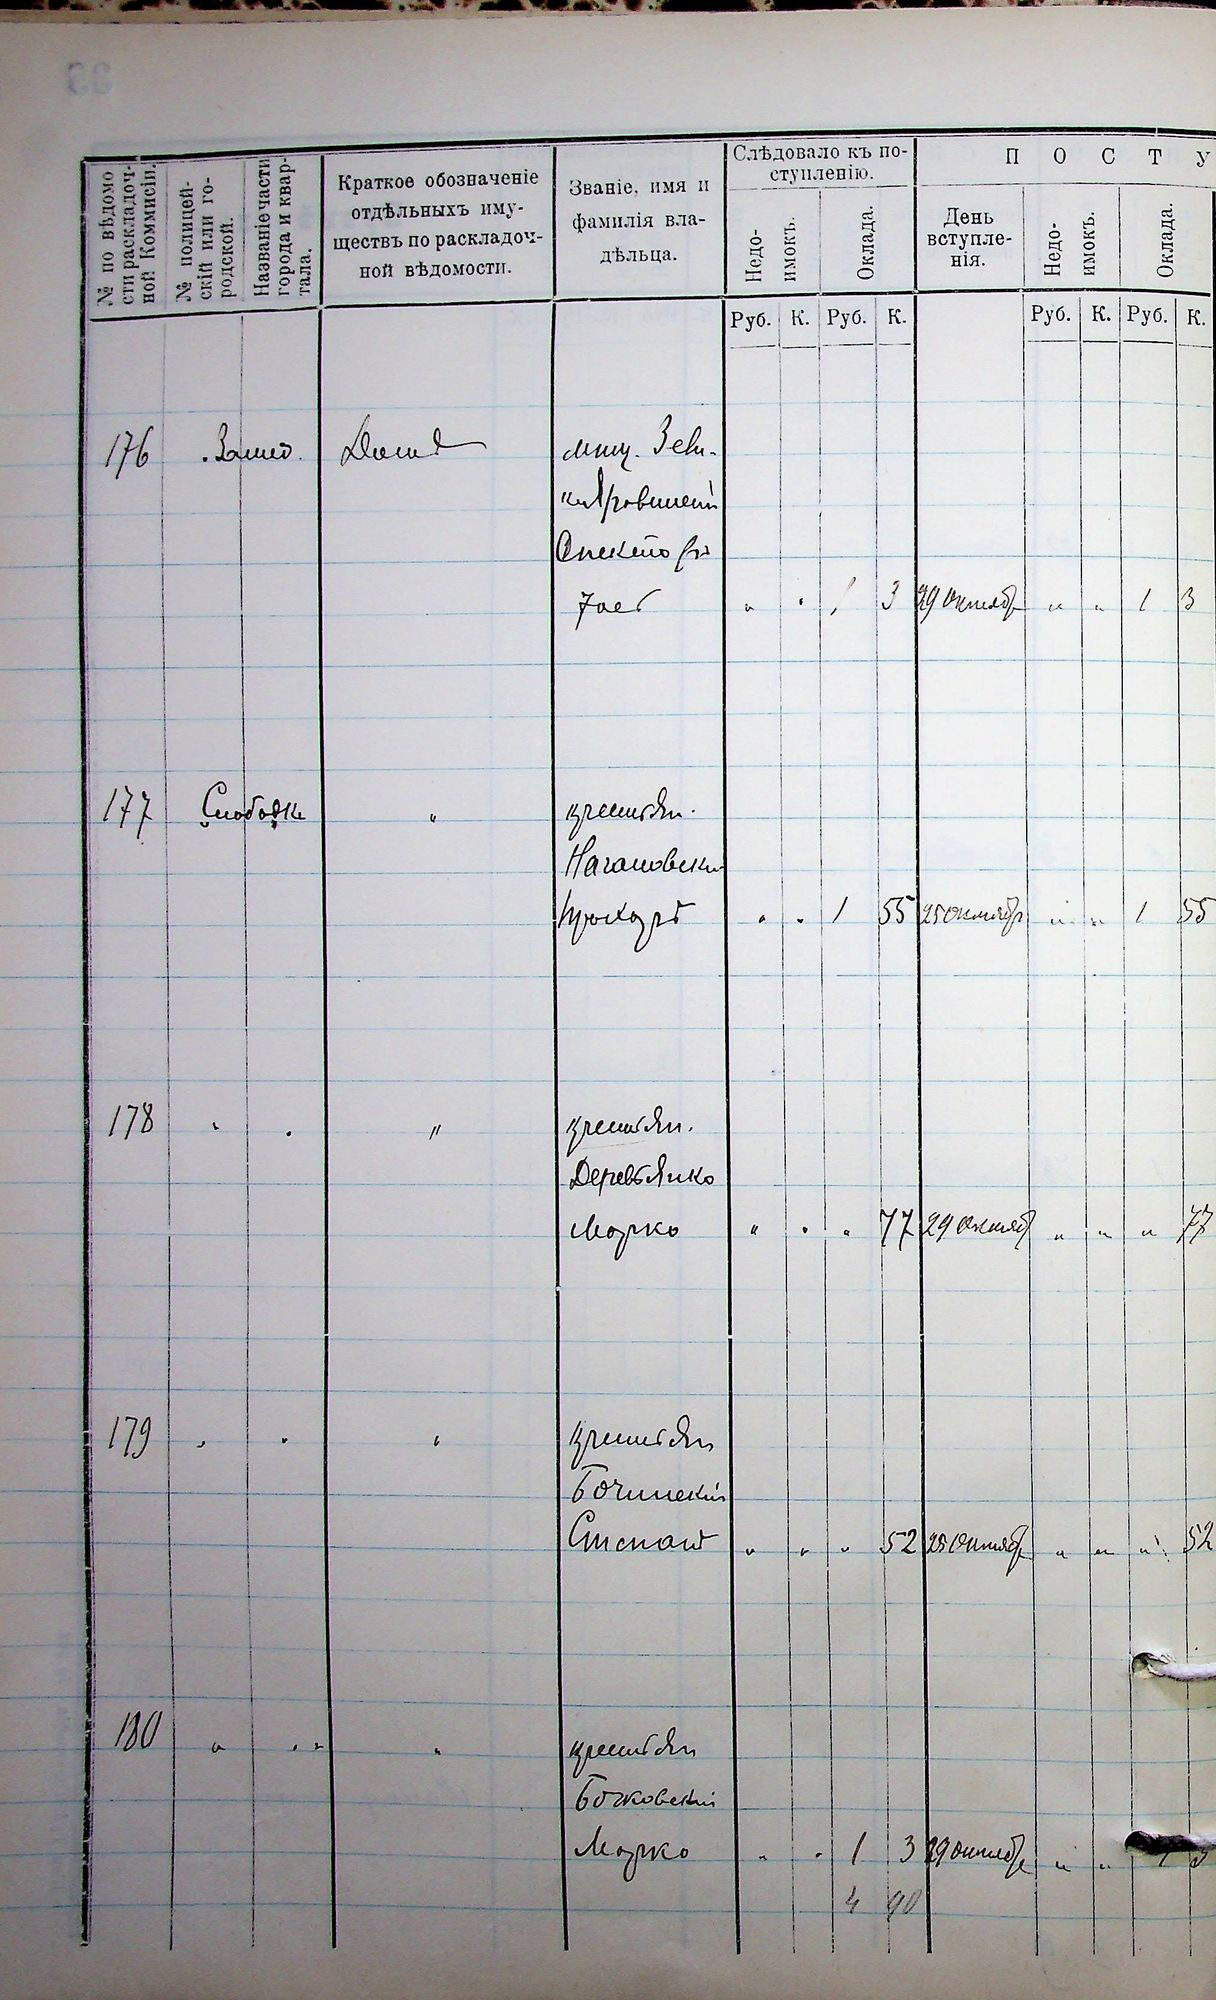 № по вѣдомо
сти раскладоч-
ной Коммисіи.
№ полицей-
скій или го-
родской.
Названіе части
города и квар-
тала.
Краткое обозначеніе
отдѣльныхъ иму-
ществъ по раскладоч-
ной вѣдомости.
Званіе, имя и
фамилія вла-
дѣльца.
Слѣдовало къ по-
ступленію.
Недо-
имокъ.
Оклада.
П О С Т У
День
вступле-
нія.
Недо-
имокъ.
Оклада.
Руб. К. Руб. К. Руб. К. Руб. К.
176 Домъ мѣщ.
1 3 29 Октябр " " 1 3
177 Слободка " крестьян.
Нагановски
Прохоръ " " 1 55 25 Октябр " " 1 55
178 " " " крестьян.
Деревьянко
Марко " " " 77 29 Октяб " " " 77
179 " " " крестьян
Бочинскій
Степанъ " " " 52 25 Октябр " " " 52
180 " " " крестьян
Бочковскій
Марко " " 1 3 29 Октябр " " 1 3
4 90